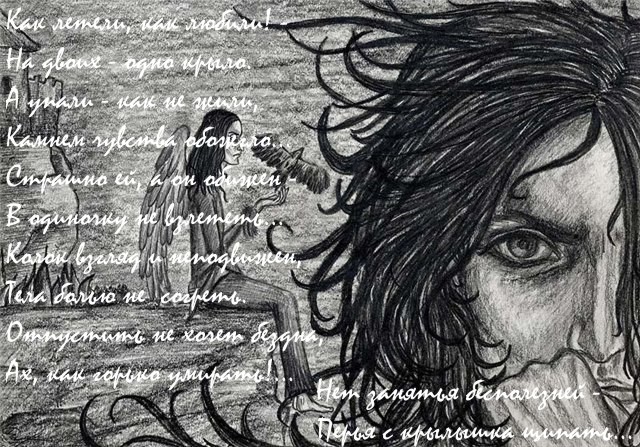 Как летели, как любили! -
На двоих - одно крыло.
А упали - как не жили,
Камнем чувства обожгло...
Страшно ей, а он обижен -
В одиночку не взлететь...
Колок взгляд и неподвижен,
Тела болью не согреть.
Отпустить не хочет бездна,
Ах, как горько умирать!...
Нет занятья бесполезней -
Перья с крылышка щипать...